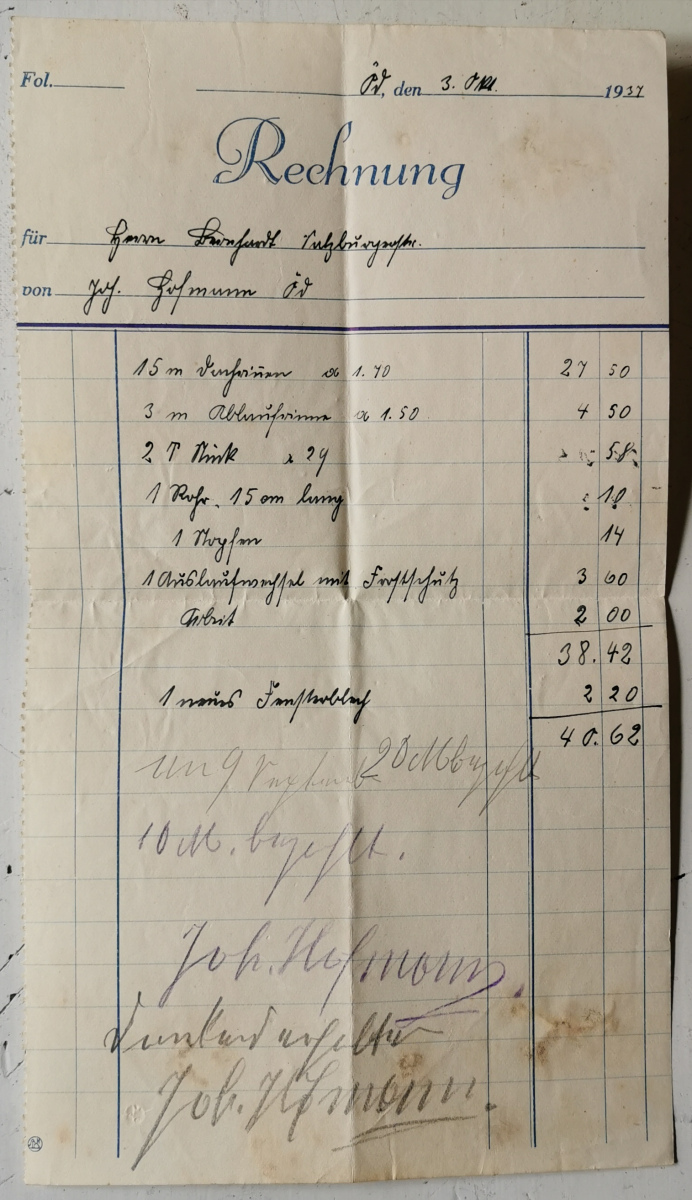 Fol. Öd, den 3. Okt. 1937
Rechnung
für Herrn Bernhardt Salzburgerstr.
von Joh. Hofmann Öd
15 m Dachrinnen a 1.70 27 50
3 m Ablaufrinne a 1.50 4 50
2 T Stück a 29 58
1 Rohr. 15 cm lang 10
1 Stopfen 14
1 Auslaufwechsel mit Frostschutz 3 60
Arbeit 2 00
38.42
1 neues Fensterblech 2 20
40.62
am 9 September 20 M bezahlt
10 M. bezahlt.
Joh. Hofmann.
Dankend erhalten
Joh. Hofmann.